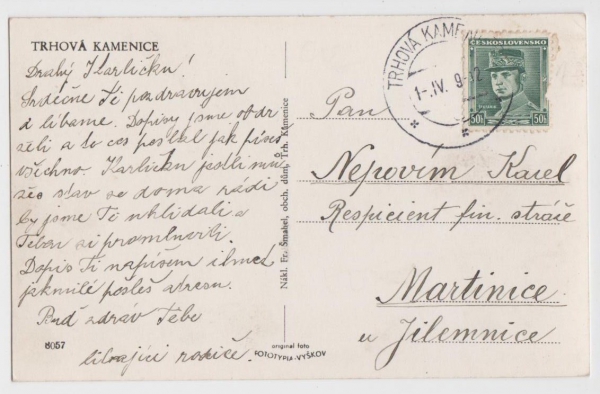 TRHOVÁ KAMENICE
Drahý Karlíčku!
Srdečně Ti pozdravujem
a líbáme. Dopisy jsme obdr
želi a to cos poslal jak píseš
všechno. Karlíčku jestli mů
žeš stav se doma rádi
by jsme Ti uhlídali a
Tebou si promluvili.
Dopis Ti napíšem ihned
jakmile pošleš adresu.
Buď zdráv Tebe
líbající rodiče.
8057
Nákl. Fr. Smahel, obch. dům, Trh. Kamenice
original foto
FOTOTYPIA-VYŠKOV
TRHOVÁ KAMENI
1-.IV. 9-12
ČESKOSLOVENSKO
50h 50h
Pan
Nepovím Karel
Respicient fin. stráže
Martinice
u Jilemnice